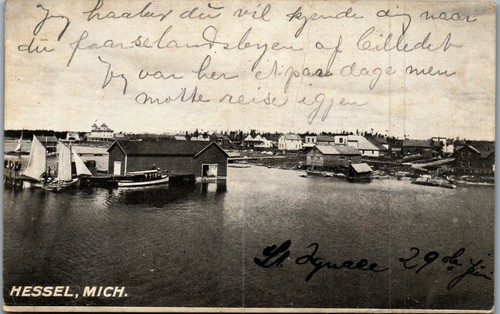 Jeg haaber du vil kjende dig naar
du faar se landsbyen af billedet
Jeg var her et par dage men
motte reise igjen
St. Ignace 29de Juni
HESSEL, MICH.